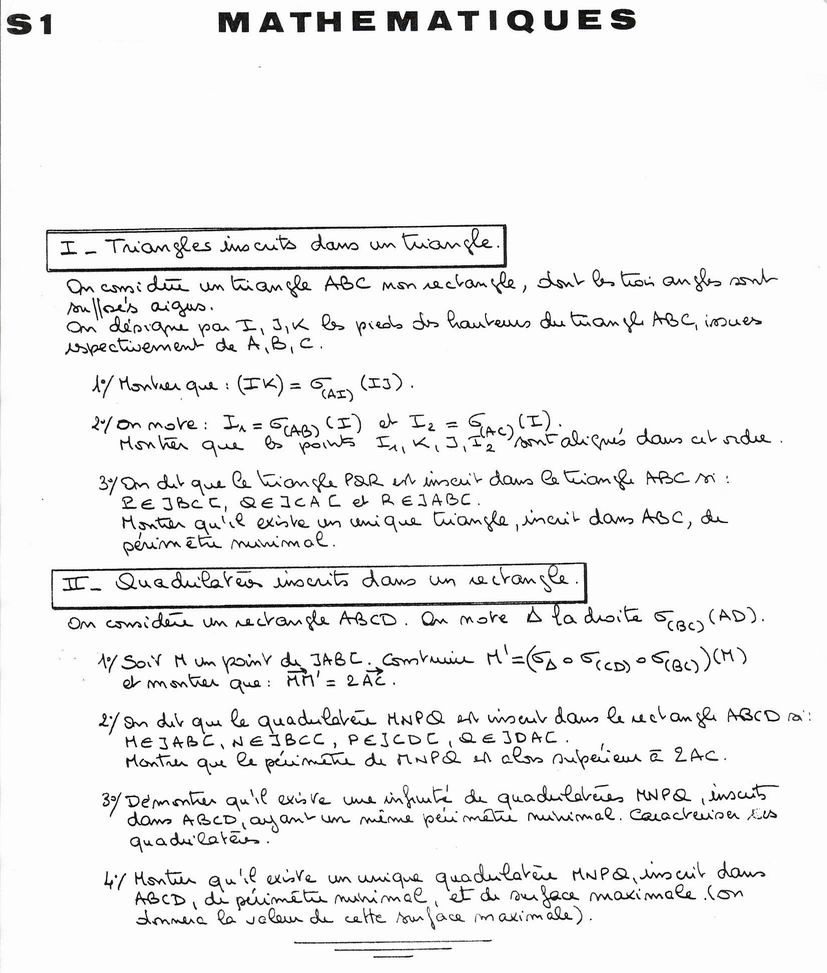 S1 MATHEMATIQUES
I - Triangles inscrits dans un triangle.
On considère un triangle ABC non rectangle, dont les trois angles sont
supposés aigus.
On désigne par I, J, K les pieds des hauteurs du triangle ABC, issues
respectivement de A, B, C.
1°/ Montrer que : (IK) = σ(AI) (IJ).
2°/ On note : I₁ = σ(AB) (I) et I₂ = σ(AC) (I).
Montrer que les points I₁, K, J, I₂ sont alignés dans cet ordre.
3°/ On dit que le triangle PQR est inscrit dans le triangle ABC si :
P ∈ ]BC[, Q ∈ ]CA[ et R ∈ ]AB[.
Montrer qu'il existe un unique triangle, inscrit dans ABC, de
périmètre minimal.
II - Quadrilatères inscrits dans un rectangle.
On considère un rectangle ABCD. On note Δ la droite σ(BC) (AD).
1°/ Soit M un point de ]AB[. Construire M' = (σΔ ∘ σ(CD) ∘ σ(BC)) (M)
et montrer que : MM' = 2AC.
2°/ On dit que le quadrilatère MNPQ est inscrit dans le rectangle ABCD si :
M ∈ ]AB[, N ∈ ]BC[, P ∈ ]CD[, Q ∈ ]DA[.
Montrer que le périmètre de MNPQ est alors supérieur à 2AC.
3°/ Démontrer qu'il existe une infinité de quadrilatères MNPQ, inscrits
dans ABCD, ayant un même périmètre minimal. Caractériser ces
quadrilatères.
4°/ Montrer qu'il existe un unique quadrilatère MNPQ, inscrit dans
ABCD, de périmètre minimal, et de surface maximale. (on
donnera la valeur de cette surface maximale).